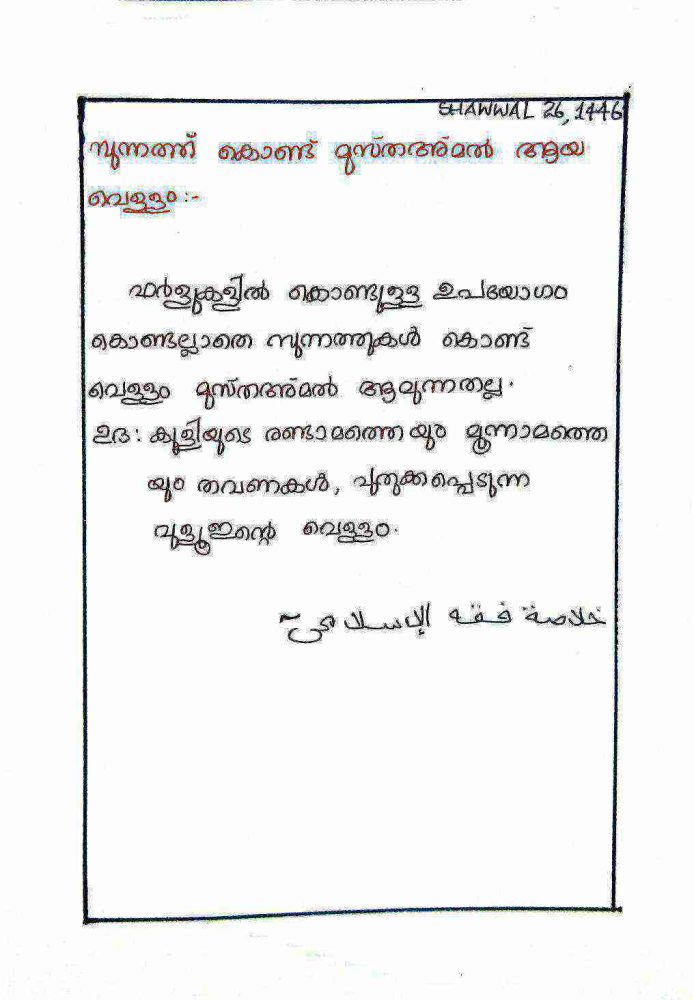 SHAWWAL 26, 1446
സുന്നത്ത് കൊണ്ട് മുസ്തഅ്മൽ ആയ
വെള്ളം:-
ഫർളുകളിൽ കൊണ്ടുള്ള ഉപയോഗം
കൊണ്ടല്ലാതെ സുന്നത്തുകൾ കൊണ്ട്
വെള്ളം മുസ്തഅ്മൽ ആവുന്നതല്ല.
ഉദ: കുളിയുടെ രണ്ടാമത്തെയും മൂന്നാമത്തെ
യും തവണകൾ, പുതുക്കപ്പെടുന്ന
വുളൂഇന്റെ വെള്ളം.
خلاصة فقه الإسلامي~